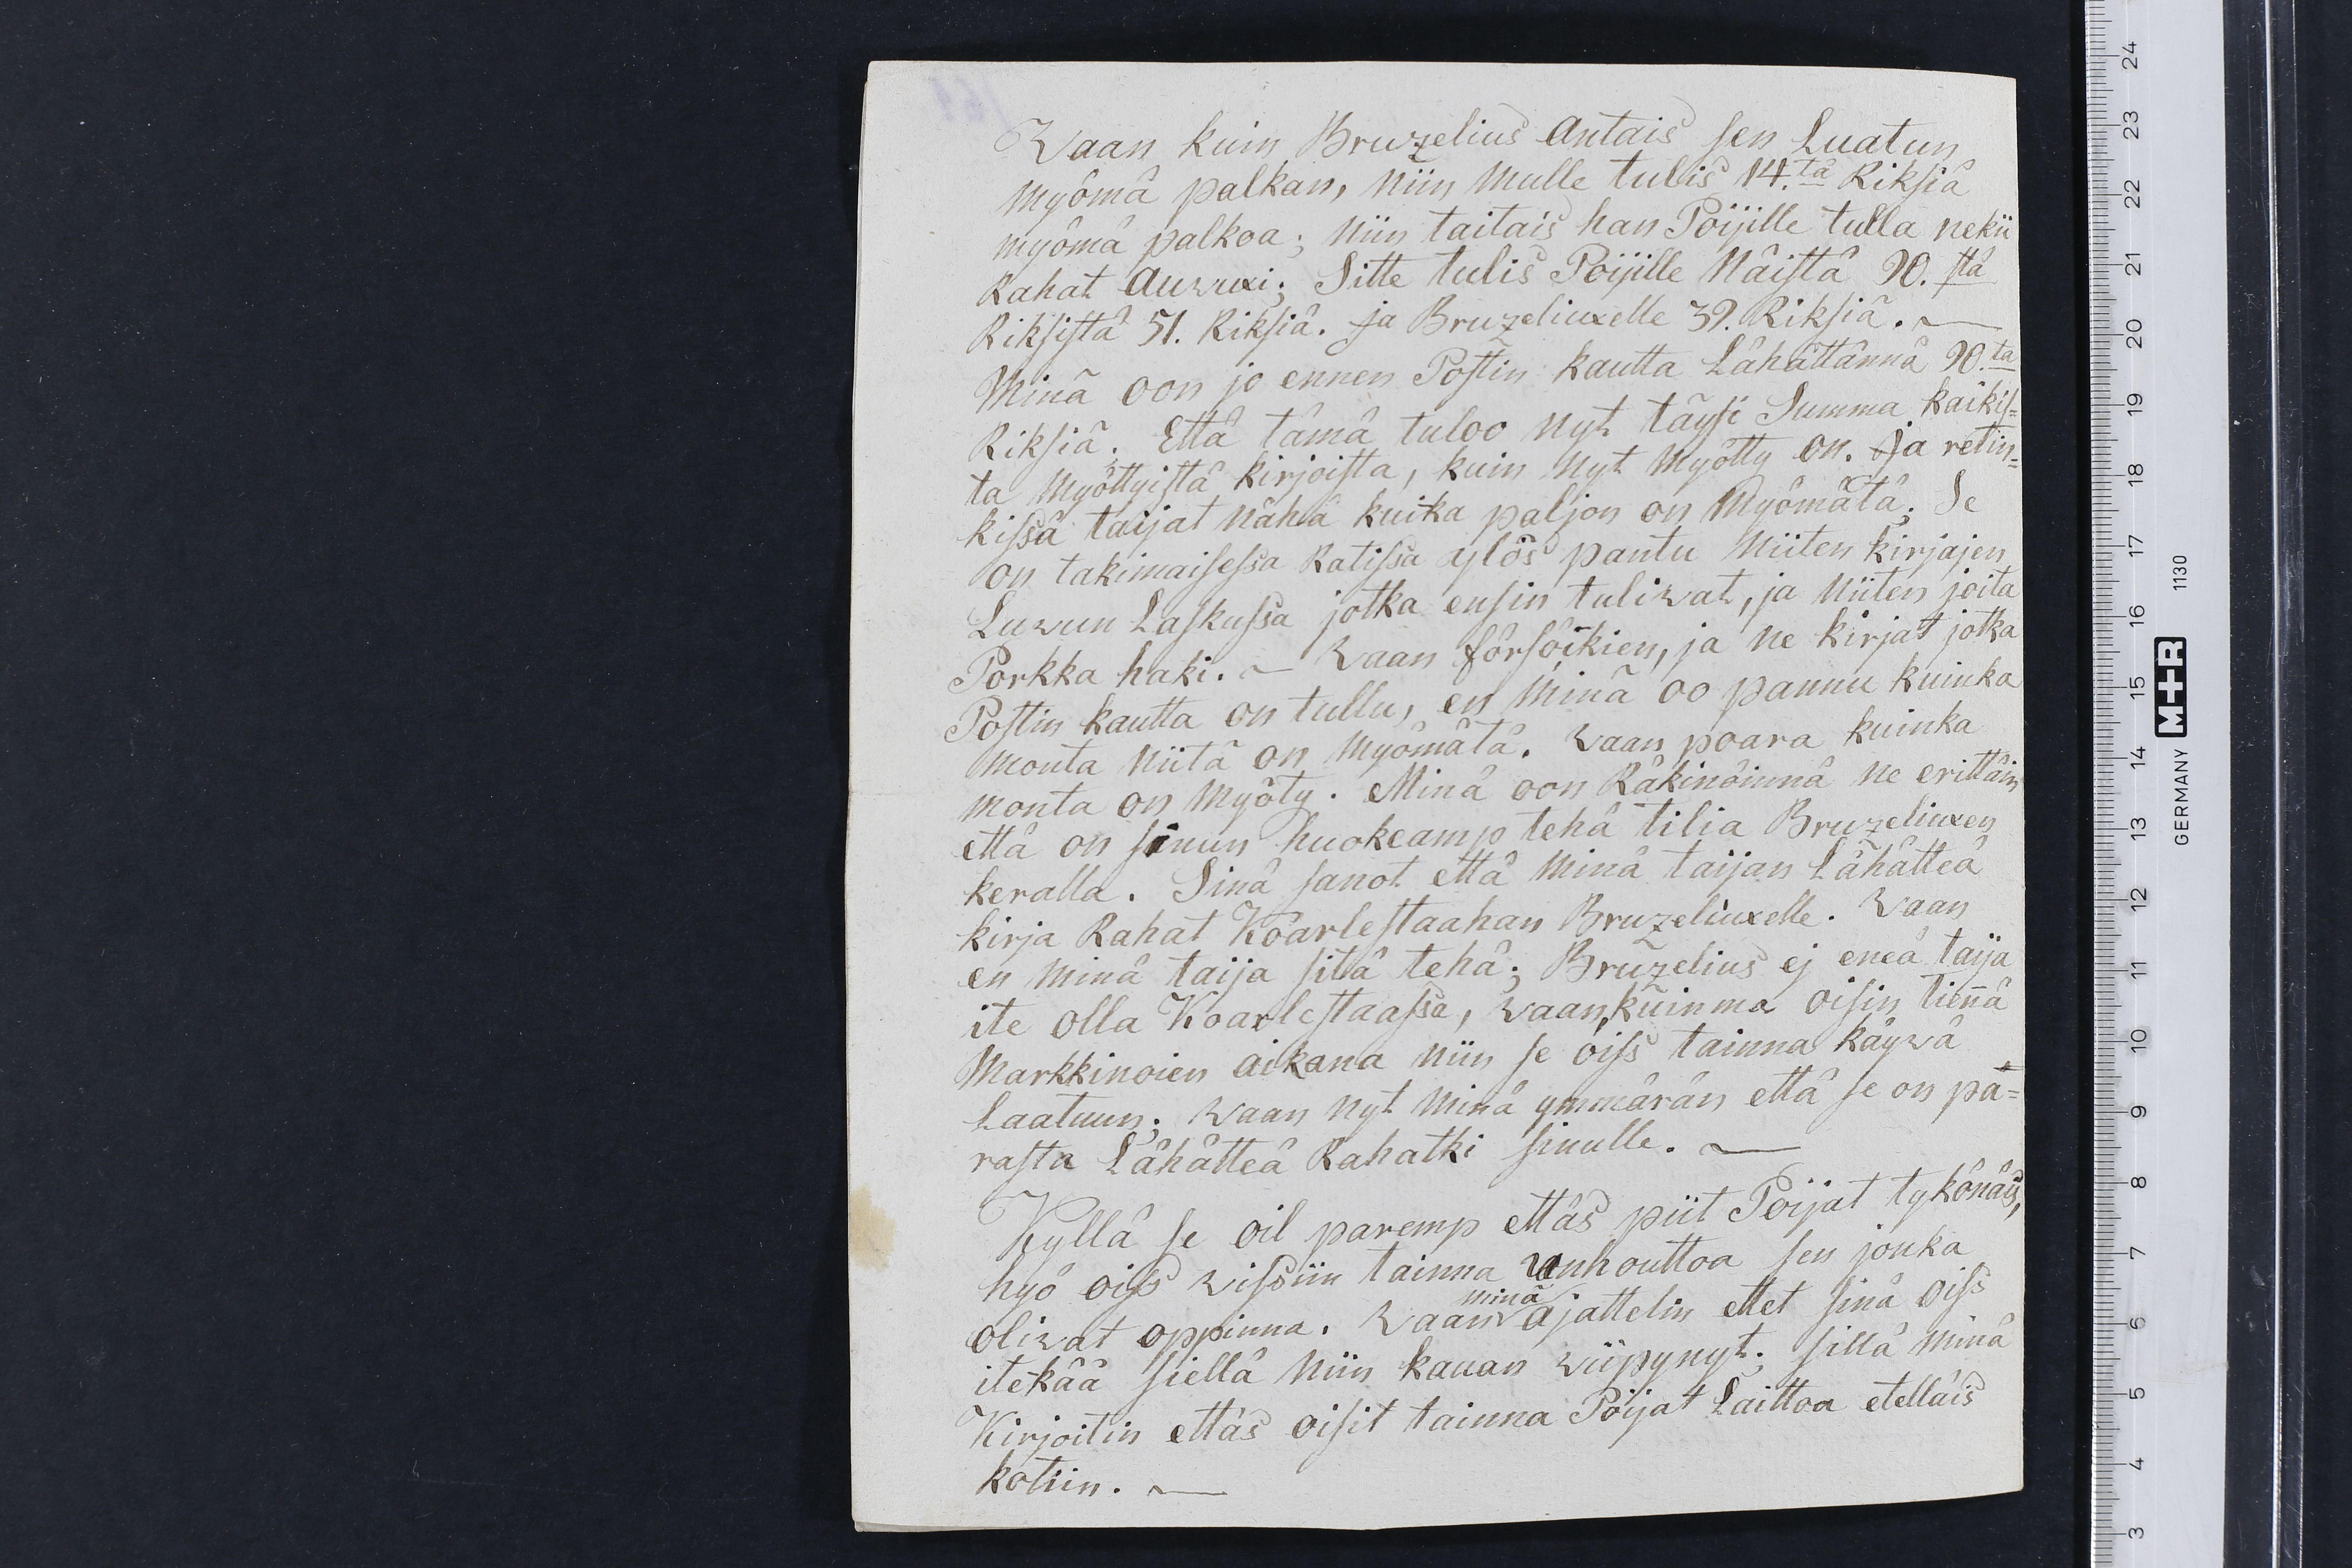 Waan kuin Bruzelius antais sen Luatun
myömä palkan, niin mulle tulis 14.ta Riksiä
myömä palkoa; niin taitais han Poijille tulla nekii
Rahat auwuxi; Sitte tulis Poijille näistä 90.stä
Riksistä 51. Riksiä. ja Bruzeliuxelle 39. Riksiä. —
Minä oon jo ennen Postin kautta Lähättännä 90.ta
Riksiä. Että tämä tuloo nyt täysi Summa kaikis=
ta myöttyistä kirjoista, kuin nyt myötty on. Ja retin=
kissä taijat nähä kuika paljon on myömätä; Se
on takimaisessa Ratissa ylös pantu niiten kirjajen
Luwun Laskussa jotka ensin tuliwat, ja niiten joita
Porkka haki. — Waan försöikien, ja ne kirjat jotka
Postin kautta on tullu, en minä oo pannu kuinka
monta niitä on myömätä. Waan poara kuinka
monta on myöty. Minä oon Räkinöinnä ne erittäin
että on sinun huokeamp tehä tiliä Bruzeliuxen
keralla. Sinä sanot että minä taijan Lähätteä
kirja Rahat Koarlestaahan Bruzeliuxelle. Waan
en minä taija sitä tehä; Bruzelius ej eneä taija
ite olla Koarlestaassa, waan, kuin ma oisin tiennä
Markkinoien aikana niin se oiss tainna käywä
Laatuun; waan nyt minä ymmärän että se on pa=
rasta Lähätteä Rahatki sinulle. —
Kyllä se oil paremp ettäs piit Poijat tykönäis,
hyö oiss wissiin tainna unhouttoa sen jonka
oliwat oppinna. Waan minä ajattelin ettet sinä oiss
itekää siellä niin kauan wiipynyt; sillä minä
Kirjoitin ettäs oisit tainna Poijat Laittoa etelläis
kotiin. —
24
23
22
21
20
19
18
17
16
15
14
13
12
11
10
9
8
7
6
5
4
3
GERMANY M+R 1130